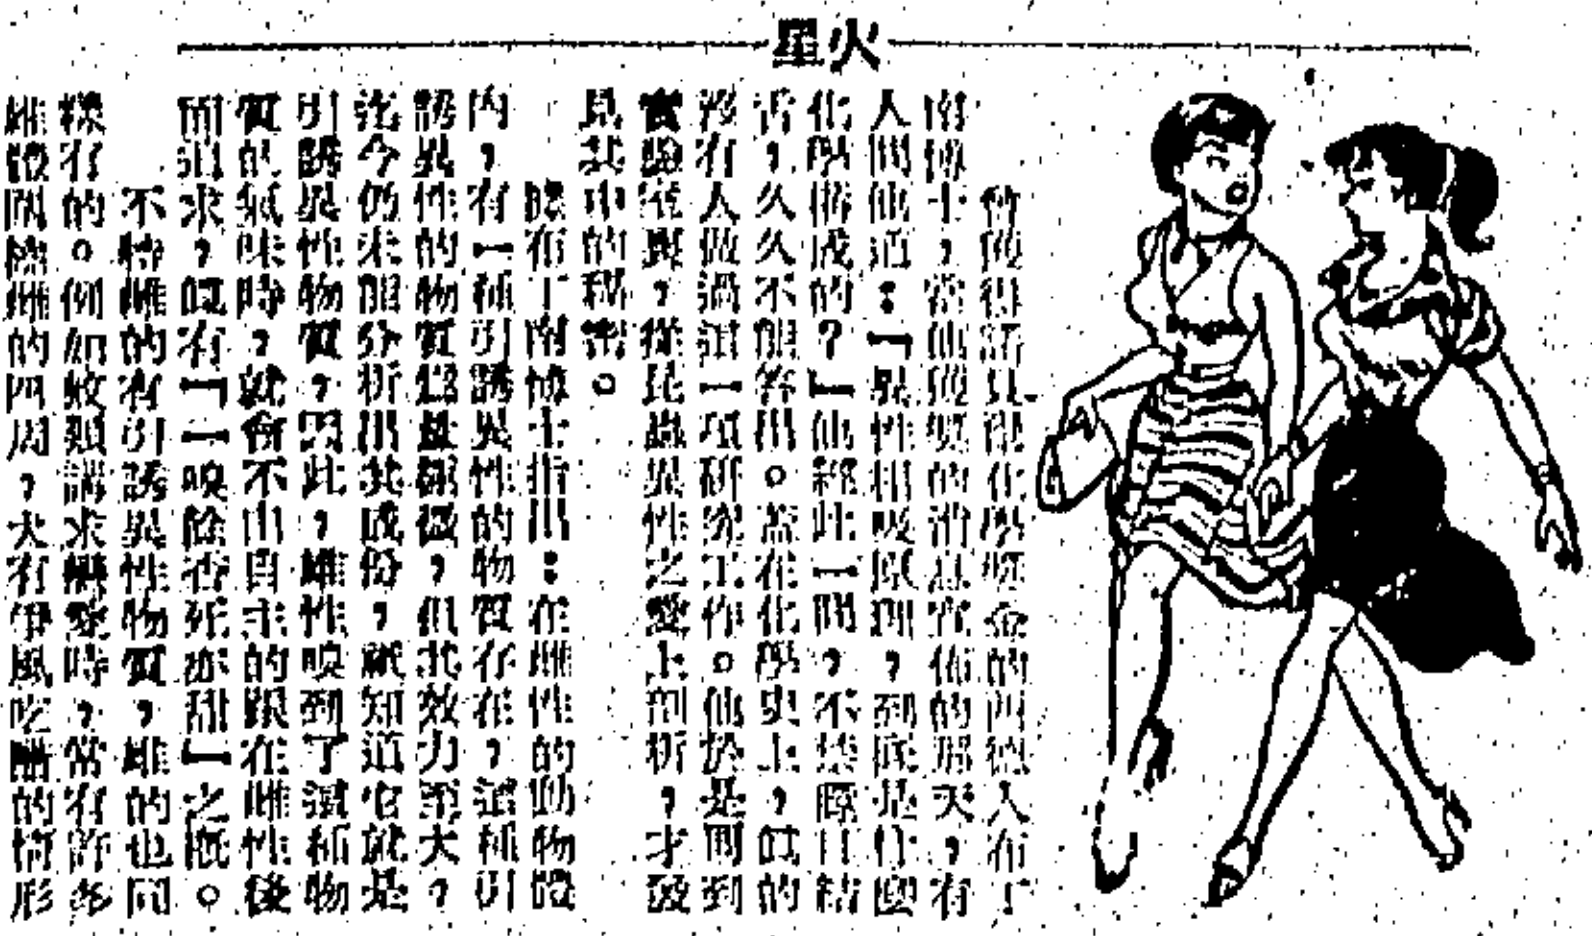 火星
曾獲得諾貝爾化學獎金的西德人布丁
南博士，當他獲獎的消息宣佈的那天，有
人問他道：「異性相吸原則，到底是什麼
化學構成的？」他經此一問，不禁瞠目結
舌，久久不能答出。蓋在化學史上，的
沒有人做過這一項研究工作。他於是回到
實驗室裏，從昆蟲異性之愛上剖析，才發
見其中的秘密。
據布丁南博士指出：在雌性的動物體
內，有一種引誘異性的物質存在，這種引
誘異性的物質爲量雖微，但其效力至大，
迄今仍未能分析出其成份，祇知道它就是
引誘異性物質，因此，雄性嗅到了這種物
質的氣味時，就會不由自主的跟在雌性後
而追求，的有「一嗅餘香死亦甜」之概。
不特雌的有引誘異性物質，雄的也同
樣有的。例如蚊類講求戀愛時，常有許多
雄體圍繞雌的四周，大有爭風吃醋的情形